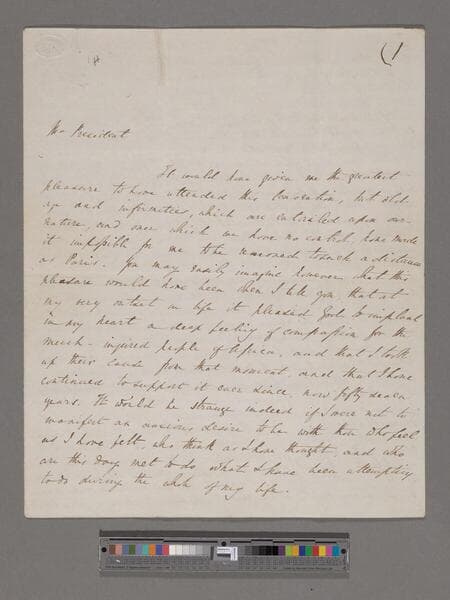 (1
Mr President
It would have given me the greatest
pleasure to have attended this Convention, but old
age and infirmities, which are entailed upon our
nature, and over which we have no control, have made
it impossible for me to be removed to such a distance
as Paris. You may easily imagine however what this
pleasure would have been when I tell you, that at
my very outset in life it pleased God to implant
in my heart a deep feeling of compassion for the
much-injured people of Africa, and that I took
up their cause from that moment, and that I have
continued to support it ever since, now fifty seven
years. It would be strange indeed if I were not to
manifest an anxious desire to be with those who feel
as I have felt, who think as I have thought, and who
are this day met to do what I have been attempting
to do during the whole of my life.